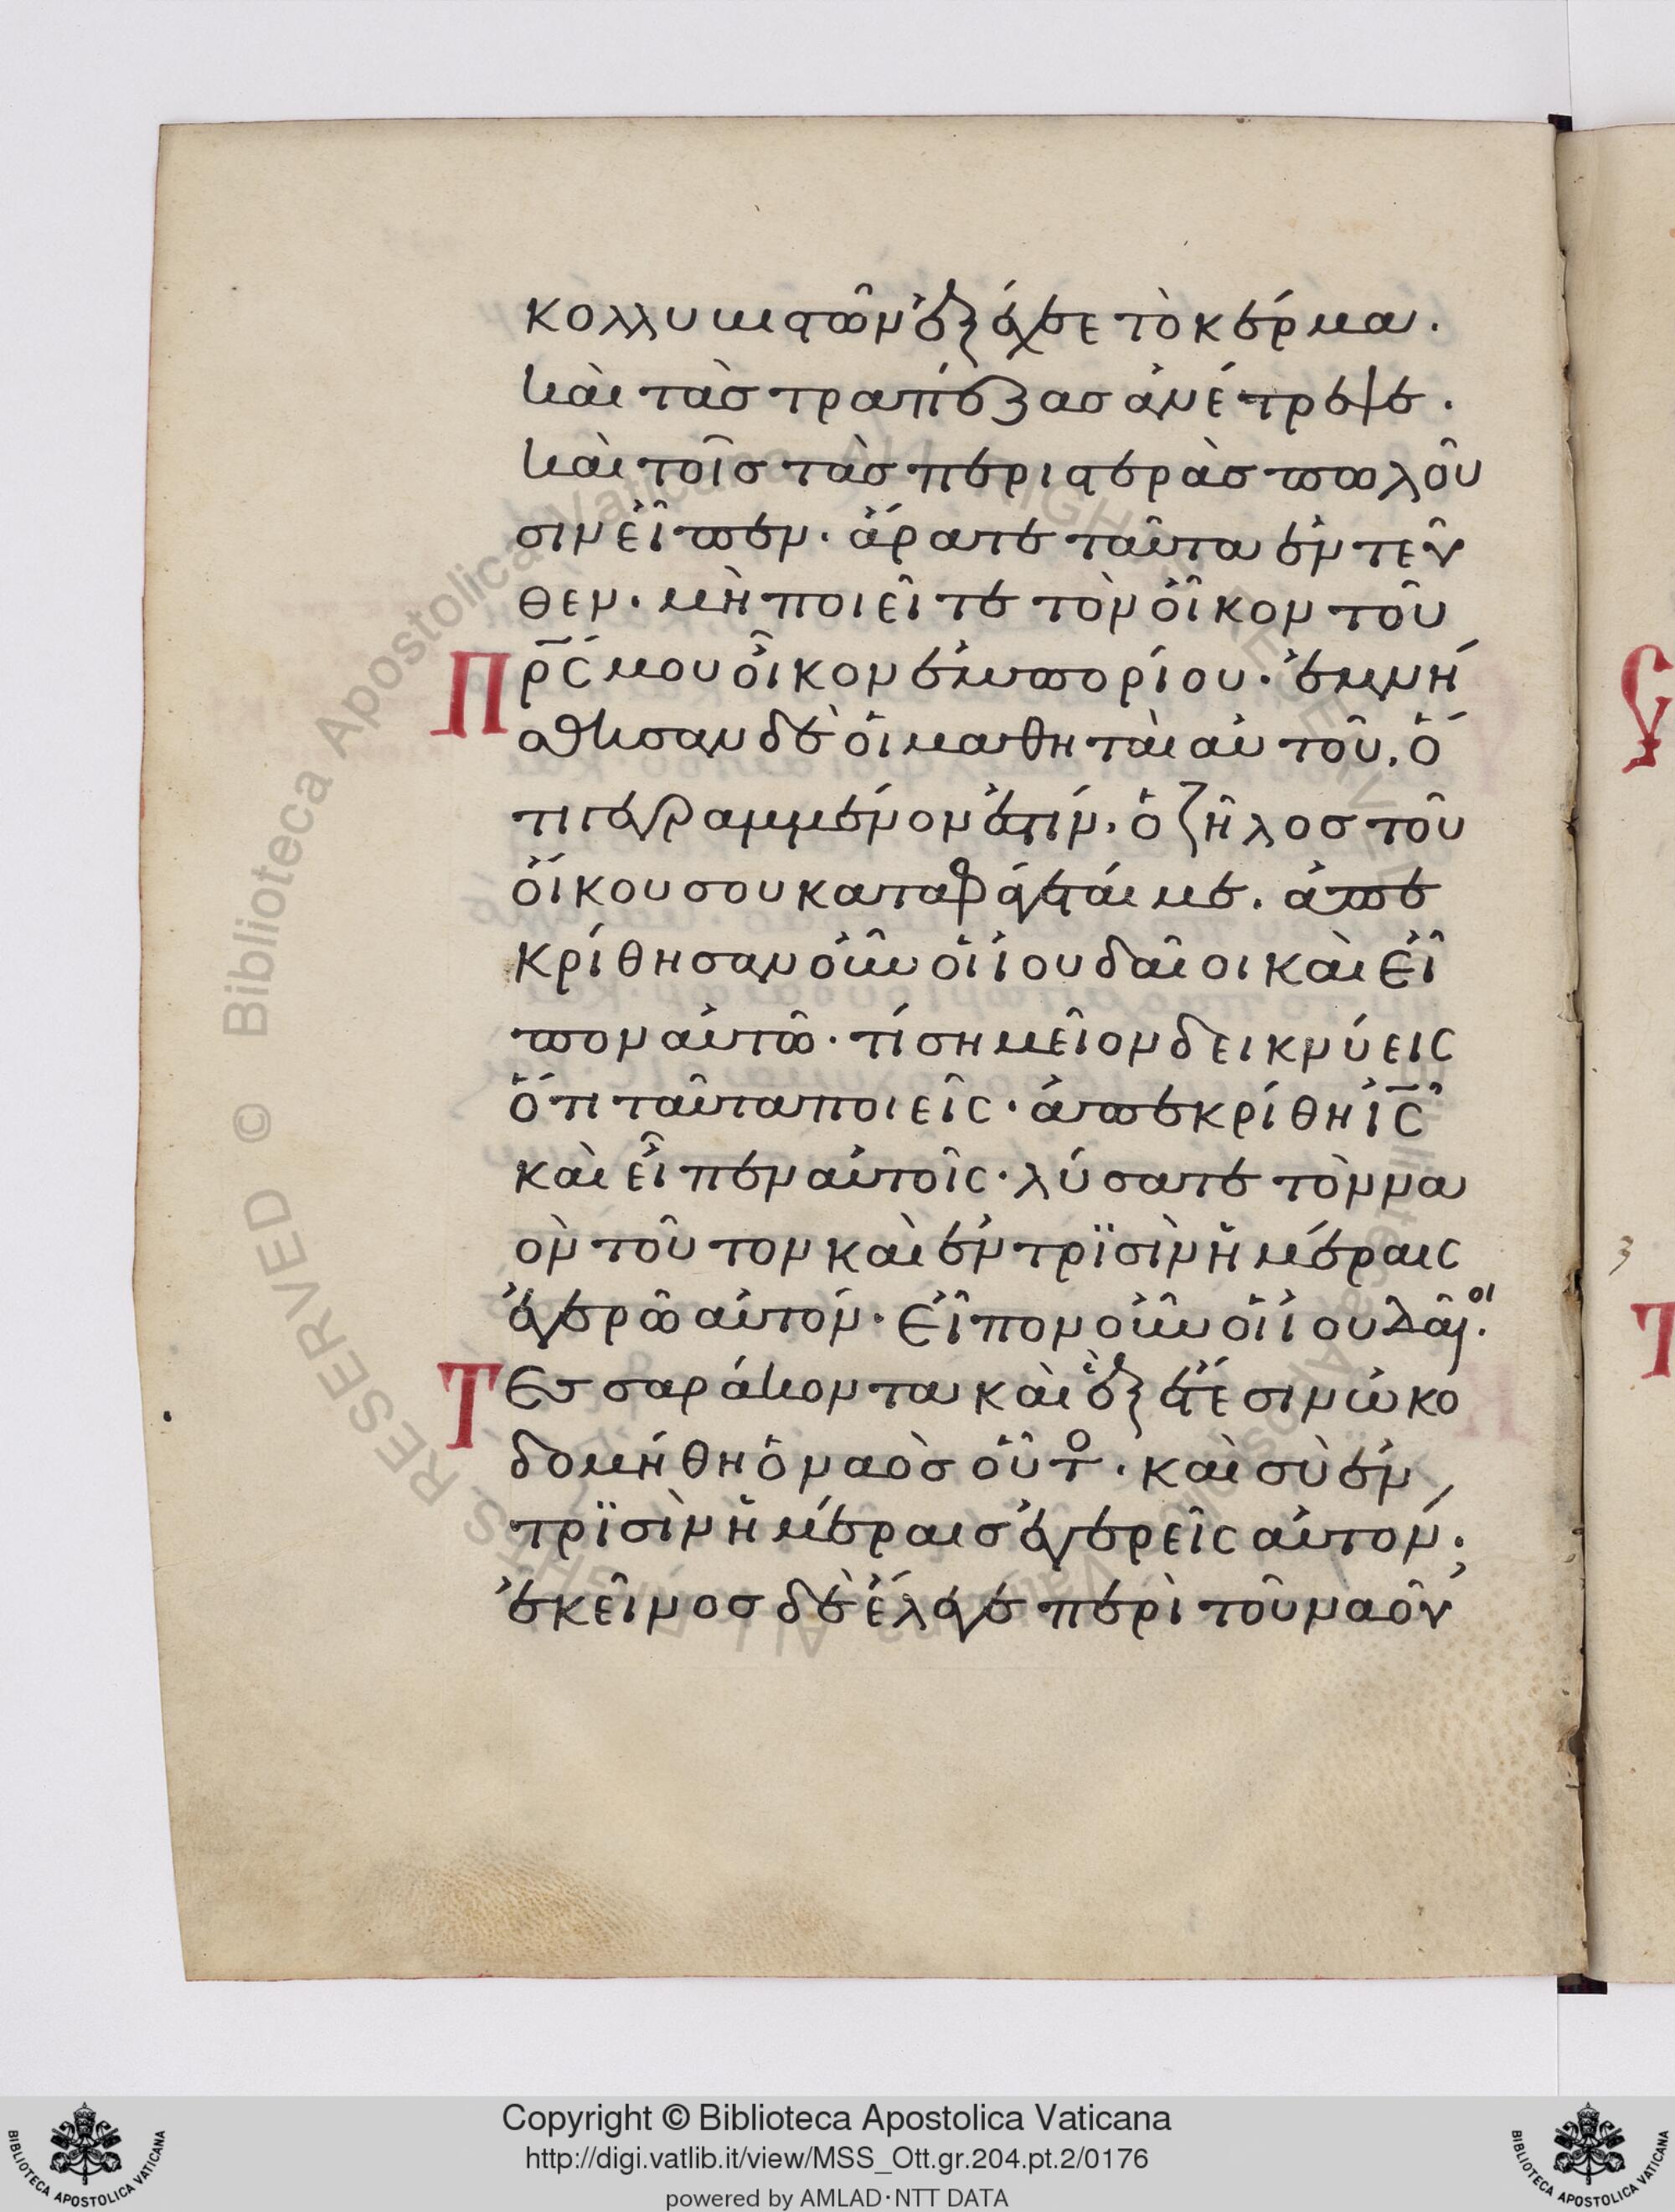 κολλυϊστῶν ἐξέχεε τὸ κέρμα.
καὶ τὰσ τραπέζασ ἀνέτρεψε.
καὶ τοῖσ τὰσ περιστερὰσ πωλοῦ
σιν εἶπεν· ἄρατε ταῦτα ἐντεῦ
θεν· μὴ ποιεῖτε τὸν οἶκον τοῦ
Πρ̅ς μου οἶκον ἐμπορίου· ἐμνή
σθησαν δὲ οἱ μαθηταὶ αὐτοῦ, ὅ
τι γεγραμμένον ἐστίν· ὁ ζῆλοσ τοῦ
οἴκου σου καταφάγεταί με. ἀπε
κρίθησαν οὖν οἱ ἰουδαῖοι καὶ εἶ
πον αὐτῶ· τί σημεῖον δεικνύεις
ὅτι ταῦτα ποιεῖς· ἀπεκρίθη ἰ̅ς
καὶ εἶπεν αὐτοῖς· λύσατε τὸν να
ὸν τοῦτον καὶ ἐν τρϊσὶν ἡμέραις
ἐγερῶ αὐτόν· εἶπον οὖν οἱ ἰουδαῖοι.
Τεσσαράκοντα καὶ ἓξ ἔτεσιν ὠκο
δομήθη ὁ ναὸσ οὗτο· καὶ σὺ ἐν
τρϊσὶν ἡμέραισ ἐγερεῖς αὐτόν·
ἐκεῖνοσ δὲ ἔλεγε περὶ τοῦ ναοῦ
Copyright © Biblioteca Apostolica Vaticana
http://digi.vatlib.it/view/MSS_Ott.gr.204.pt.2/0176
powered by AMLAD·NTT DATA